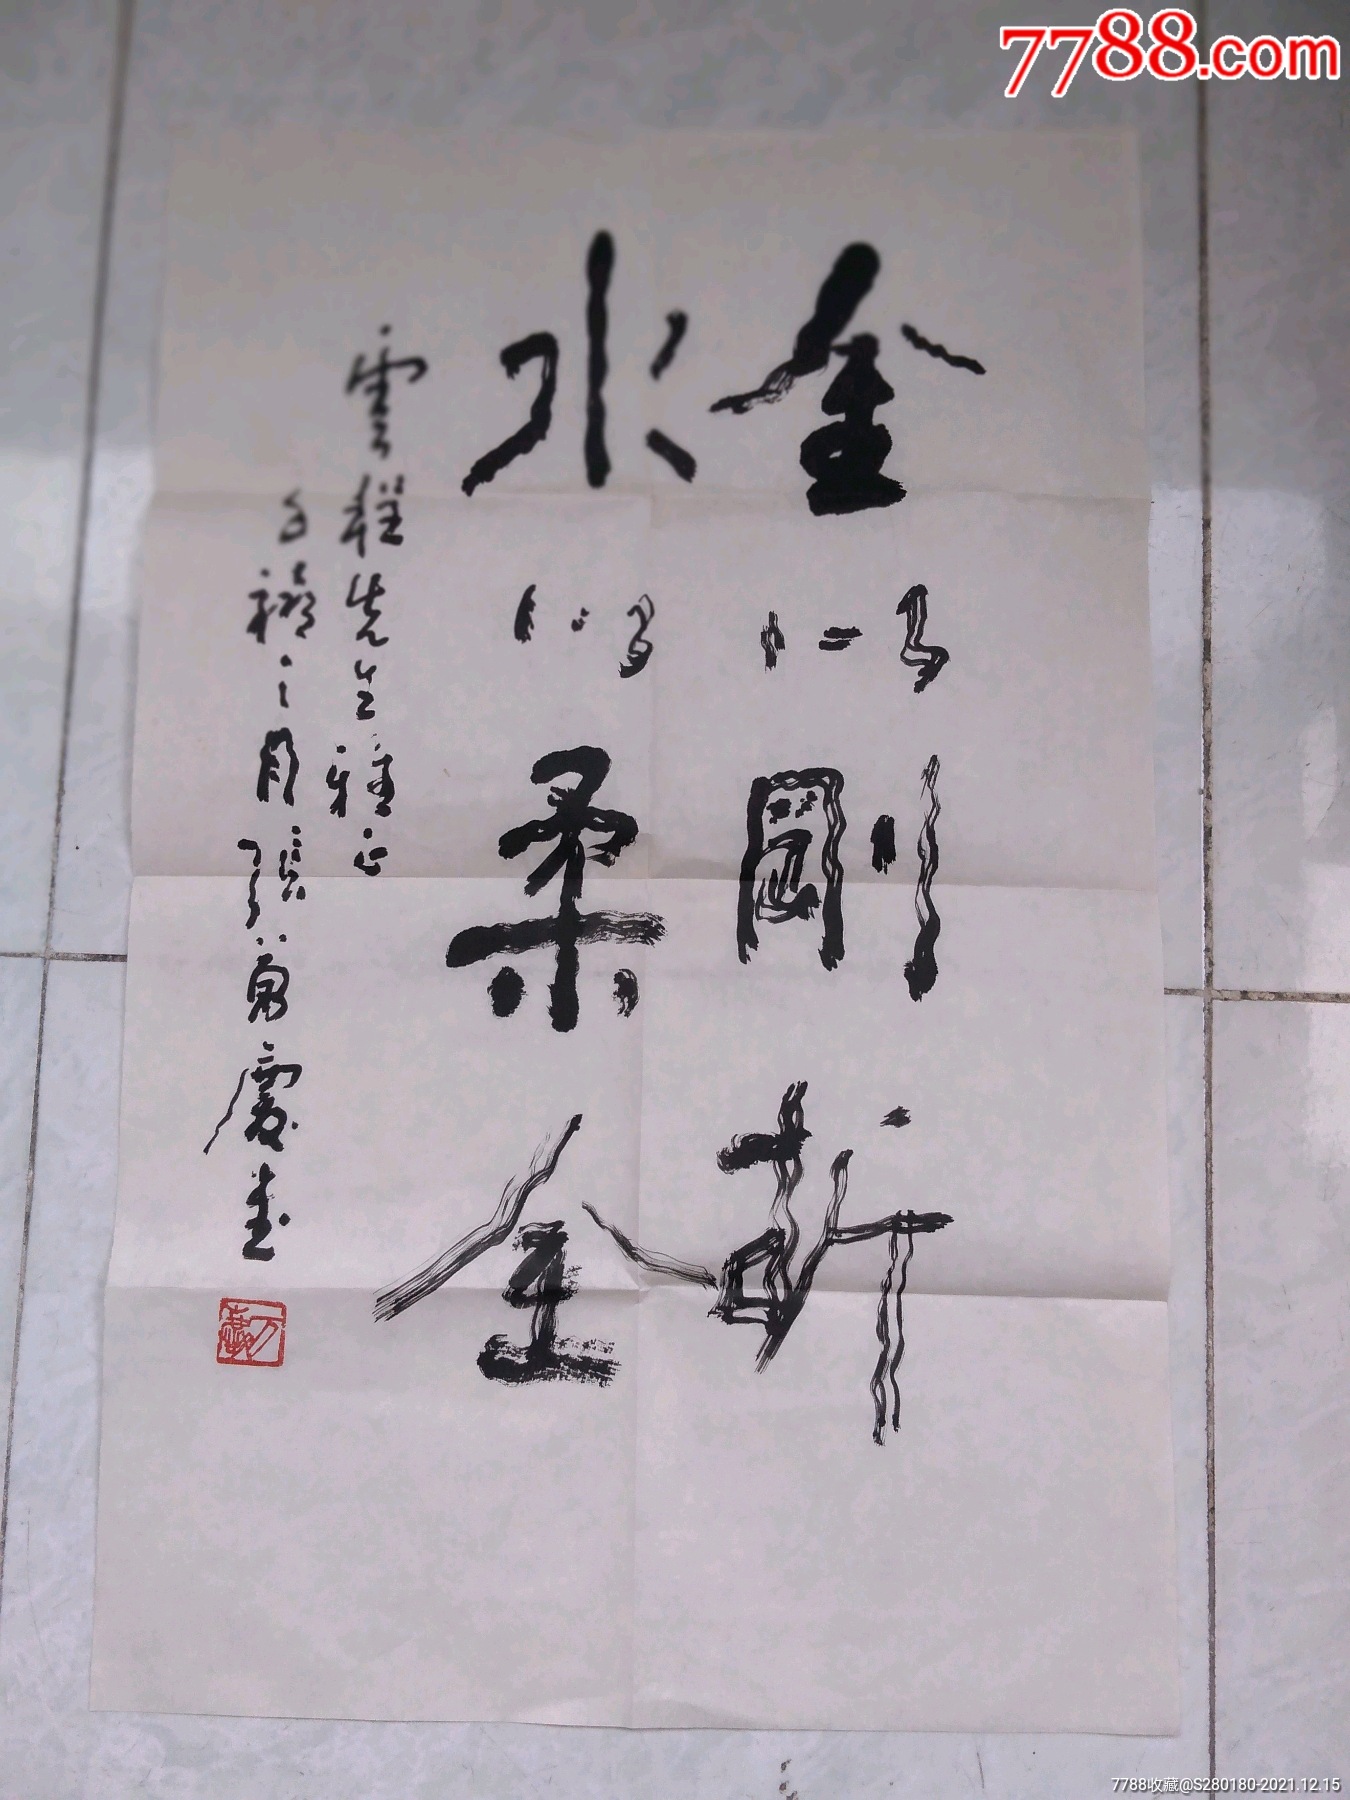 7788.com
金以剛折
水以柔全
雲程先生雅正
張萬慶書
7788收藏@S280180-2021.12.15